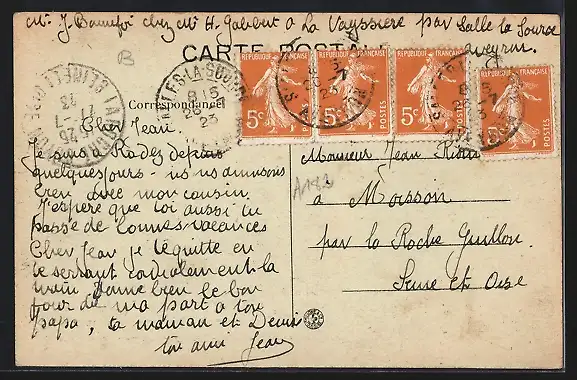 Mr J. Bannefoi chez Mr H. Gabbert à La Vayssière par Salle la Source
Aveyron
B
CARTE POSTALE
Correspondance
REPUBLIQUE FRANÇAISE
5c
POSTES
REPUBLIQUE FRANÇAISE
5c
POSTES
REPUBLIQUE FRANÇAISE
5c
POSTES
REPUBLIQUE FRANÇAISE
5c
POSTES
Cher Jean.
Je suis Rodez depuis
quelques jours - ns ns amusons
bien avec mon cousin.
J'espère que toi aussi tu
passe de bonnes vacances
Cher Jean je te quitte en
te serrant cordialement la
main Donne bien le bon
jour de ma part à ton
papa, ta maman et Denis
ton ami Jean
A182
Monsieur Jean
à Moisson
par la Roche Guillon
Seine et Oise